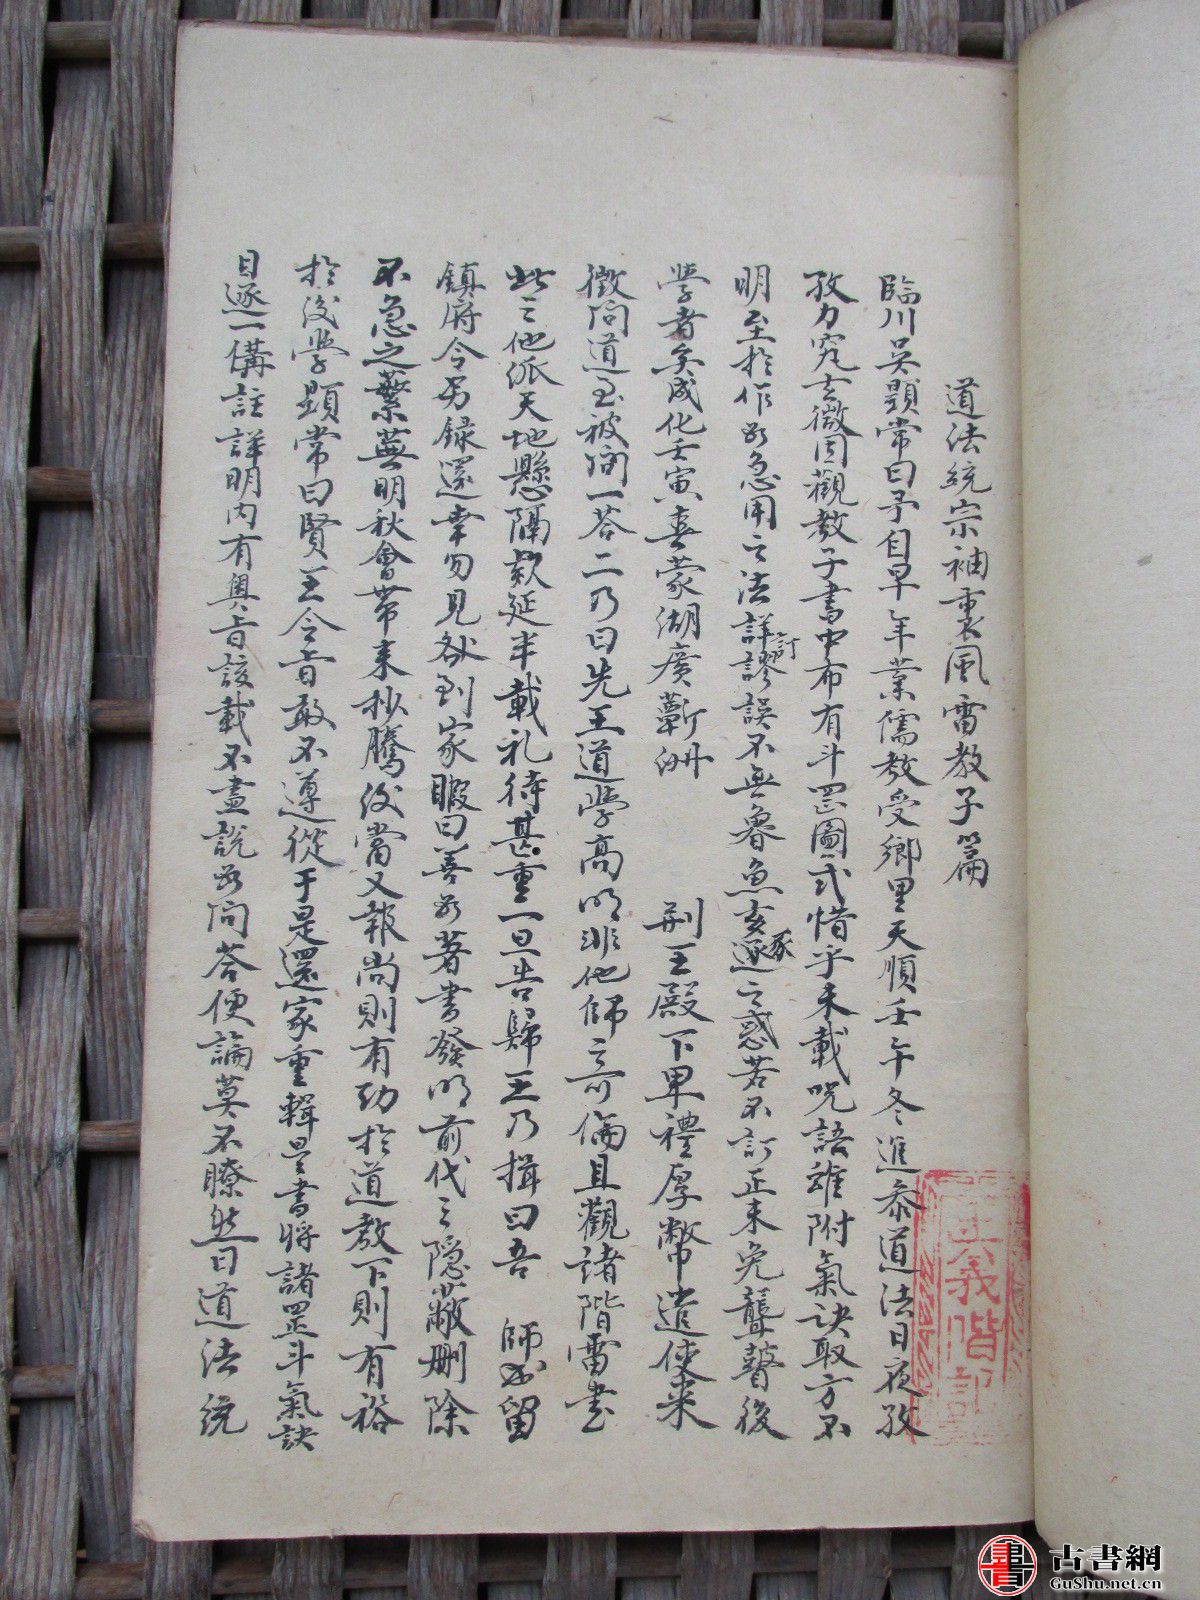 道法統宗袖裏風雷教子篇
臨川吳顯常曰予自早年業儒教受鄉里天順壬午冬進叅道法日夜孜
孜力究玄微因觀教子書中布有斗罡圖式惜乎未載咒語雖附氣訣取方不
明至扵作用急用之法詳訂謬誤不無魯魚亥豕逐之惑若不訂正未免聾瞽後
學者矣成化壬寅喜蒙湖廣蘄州
荆王殿下卑禮厚幣遣使来
徵問道至被問一荅二乃曰先王道學高明非他師之可倫且觀諸階雷書
此之他派天地懸隔欵延半載礼待甚重一旦告歸王乃揖曰吾 師必留
鎮府令另録還幸勿見却到家暇日善為著書發明前代之隐蔽删除
不急之蘩蕪明秋會带来抄騰後當又報尚則有功扵道教下則有裕
扵後學顯常曰賢王令旨敢不遵從于是還家重輯是書將諸罡斗氣訣
目逐一備註詳明内有奥旨該載不盡說為問荅便論莫不瞭然曰道法統
王義階記
古書網
GuShu.net.cn